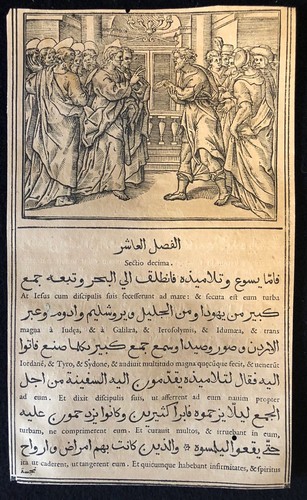 الفصل العاشر
Sectio decima.
فامّا يسوع وتلاميذه فانطلق الي البحر وتبعه جمع
At Iesus cum discipulis suis secesserunt ad mare: & secuta est eum turba
كبير من يهودا ومن الجليل ويروشليم وادوم وعبر
magna à Iudęa, & à Galilæa, & Ierosolymis, & Idumæa, & trans
الاردن وصور وصيدا وسمع جمع كبير بكلما صنع فاتوا
Iordanē, & Tyro, & Sydone, & audiuit multitudo magna quęcũque fecit, & uenerũt
اليه فقال لتلاميذه يقدّمون اليه السفينة من اجل
ad eum. Et dixit discipulis suis, ut afferrent ad eum nauim propter
الجمع ليلّا يزحموه فابرا كثيرين وكانوا يزدحمون عليه
turbam, ne comprimerent eum. Et curauit multos, & irruebant in eum,
حتي يقعوا ليلمسوه والذين كانت بهم امراض وارواح
ita ut caderent, ut tangerent eum. Et quicumque habebant infirmitates, & spiritus